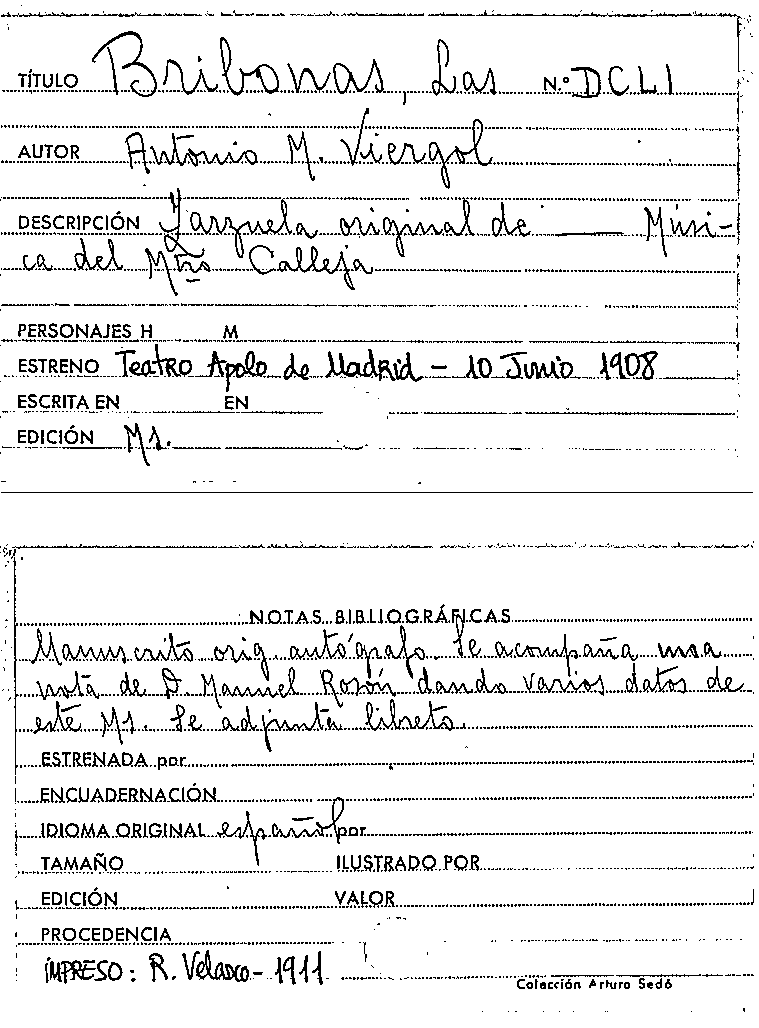 TÍTULO Bribonas, Las N.º DCLI
AUTOR Antonio M. Viergol
DESCRIPCIÓN Zarzuela original de —— Músi-
ca del Mtro Calleja
PERSONAJES H M
ESTRENO Teatro Apolo de Madrid - 10 Junio 1908
ESCRITA EN EN
EDICIÓN Ms.
NOTAS BIBLIOGRÁFICAS
Manuscrito orig. autógrafo. Se acompaña una
nota de D. Manuel Rosón dando varios datos de
este Ms. Se adjunta libreto.
ESTRENADA por
ENCUADERNACIÓN
IDIOMA ORIGINAL español por
TAMAÑO ILUSTRADO POR
EDICIÓN VALOR
PROCEDENCIA
IMPRESO: R. Velasco - 1911
Colección Arturo Sedó